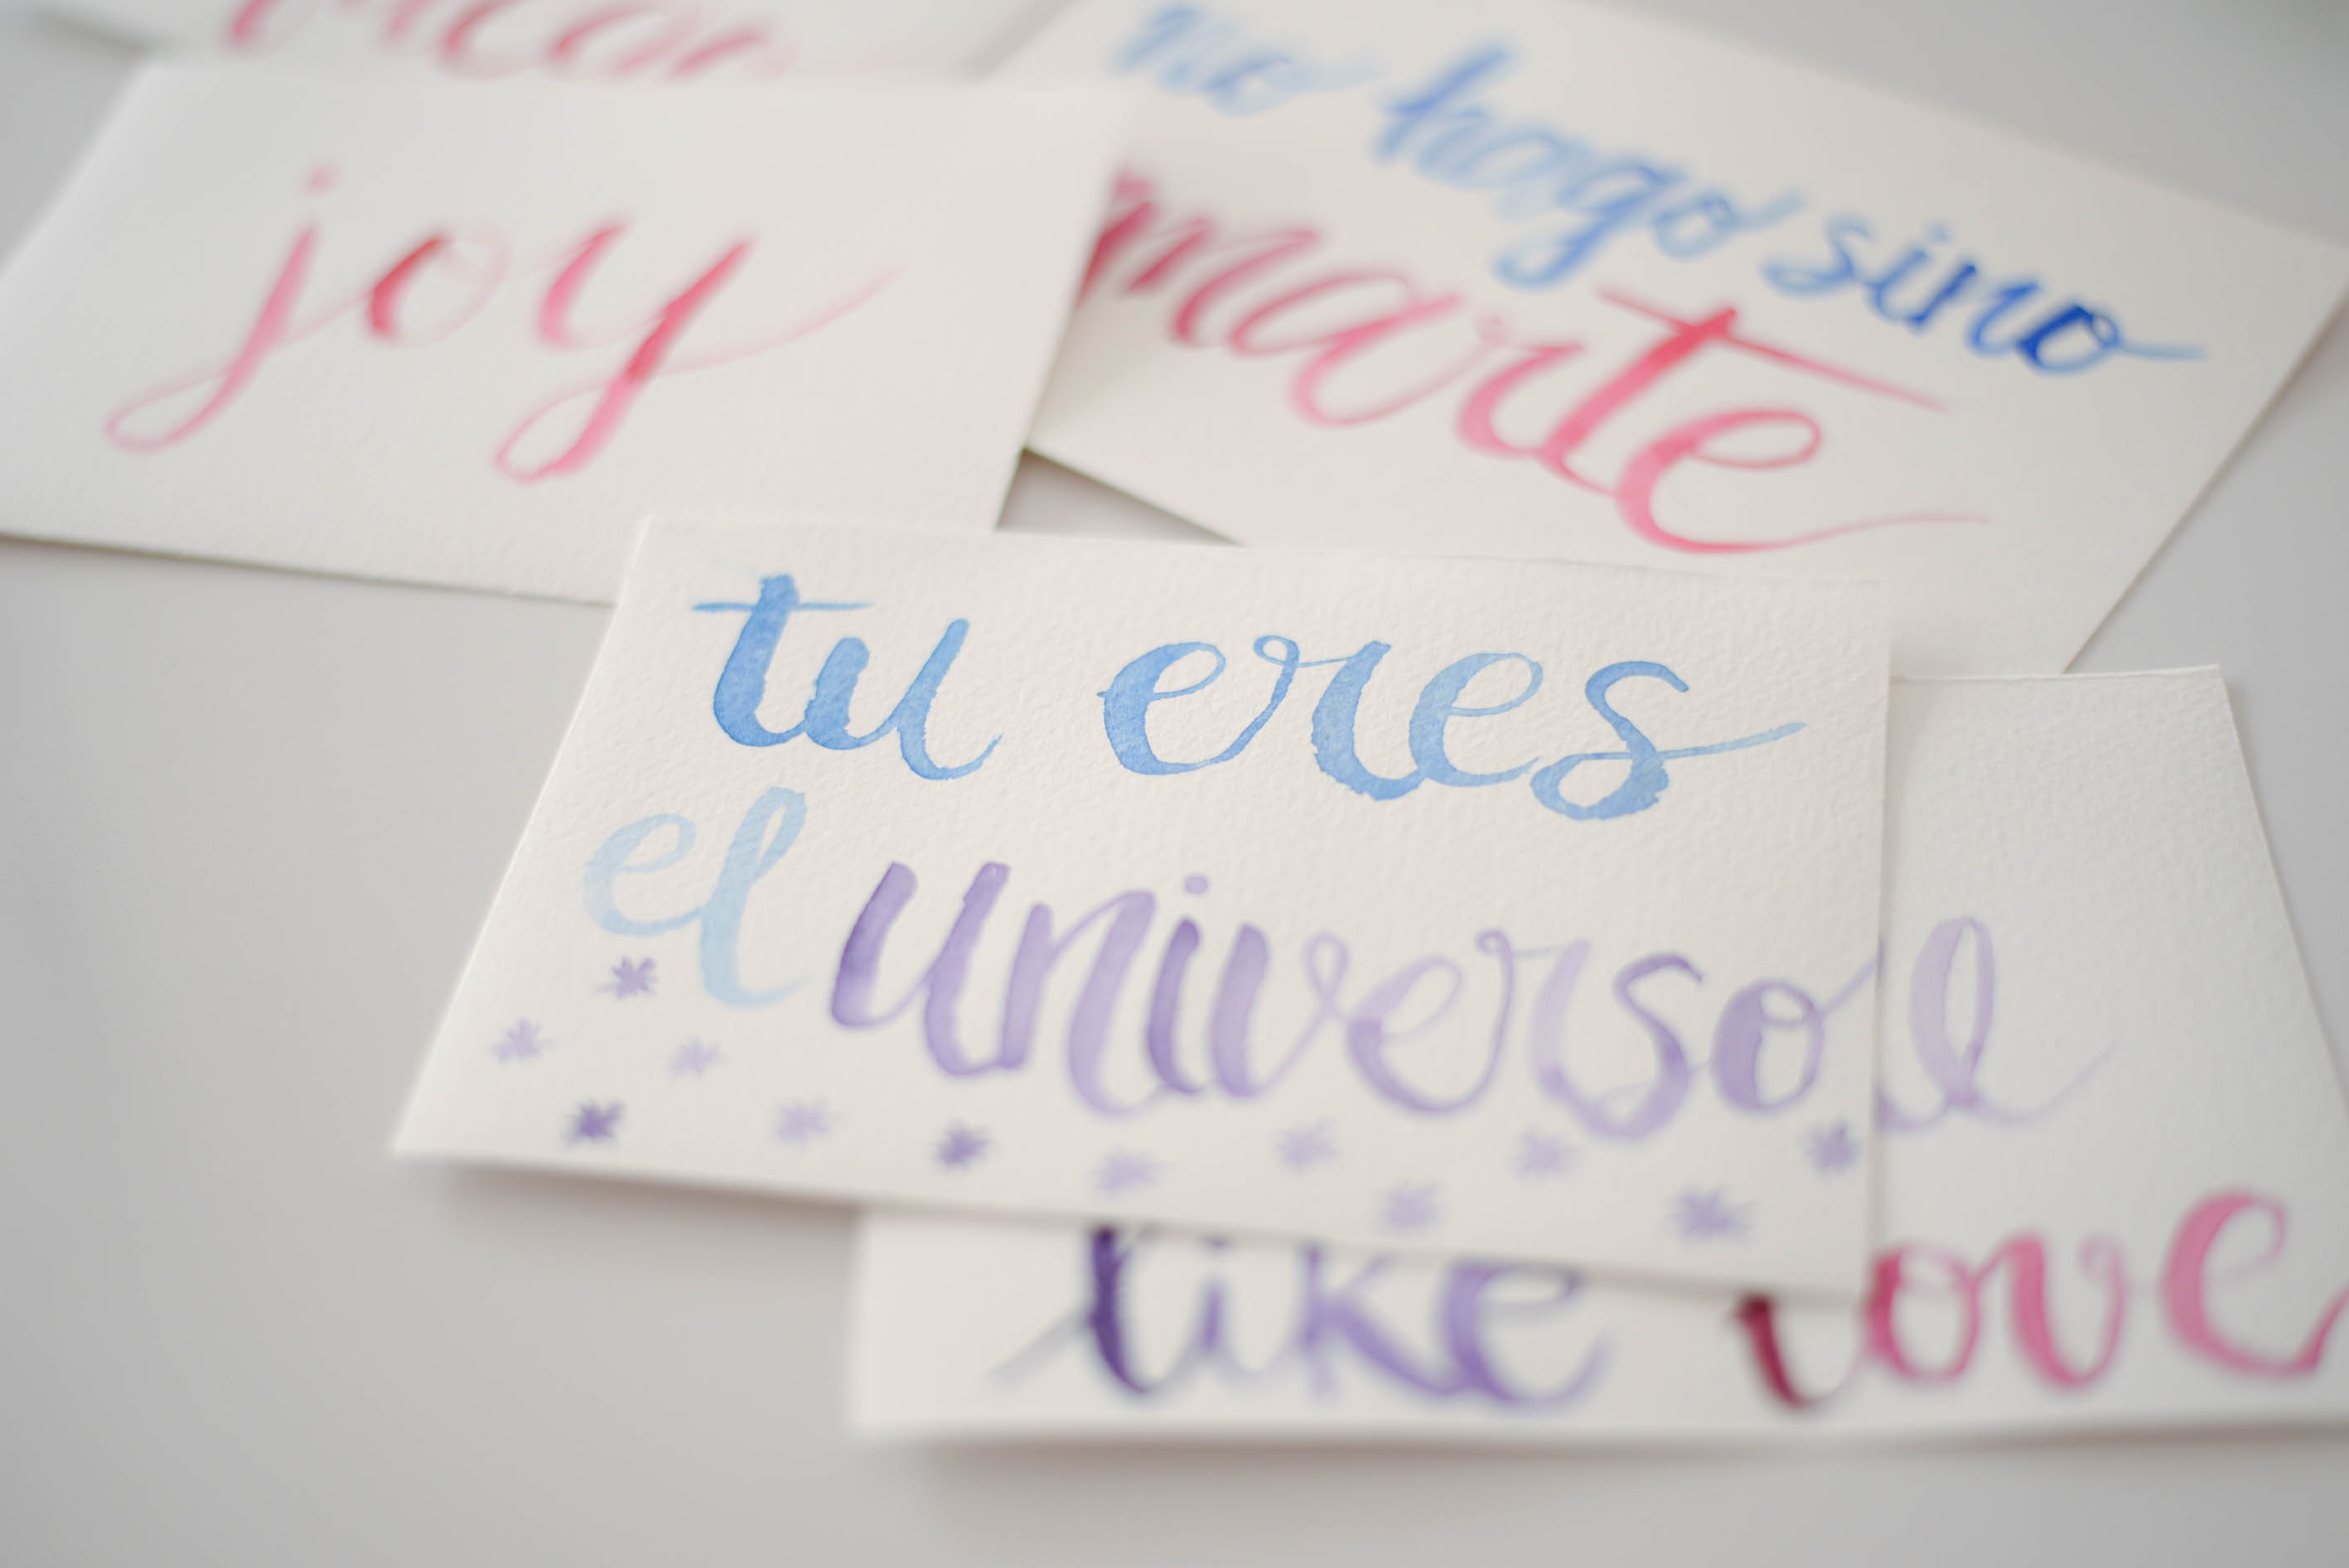 joy
no hago sino
marte
tu eres
el universo
like love